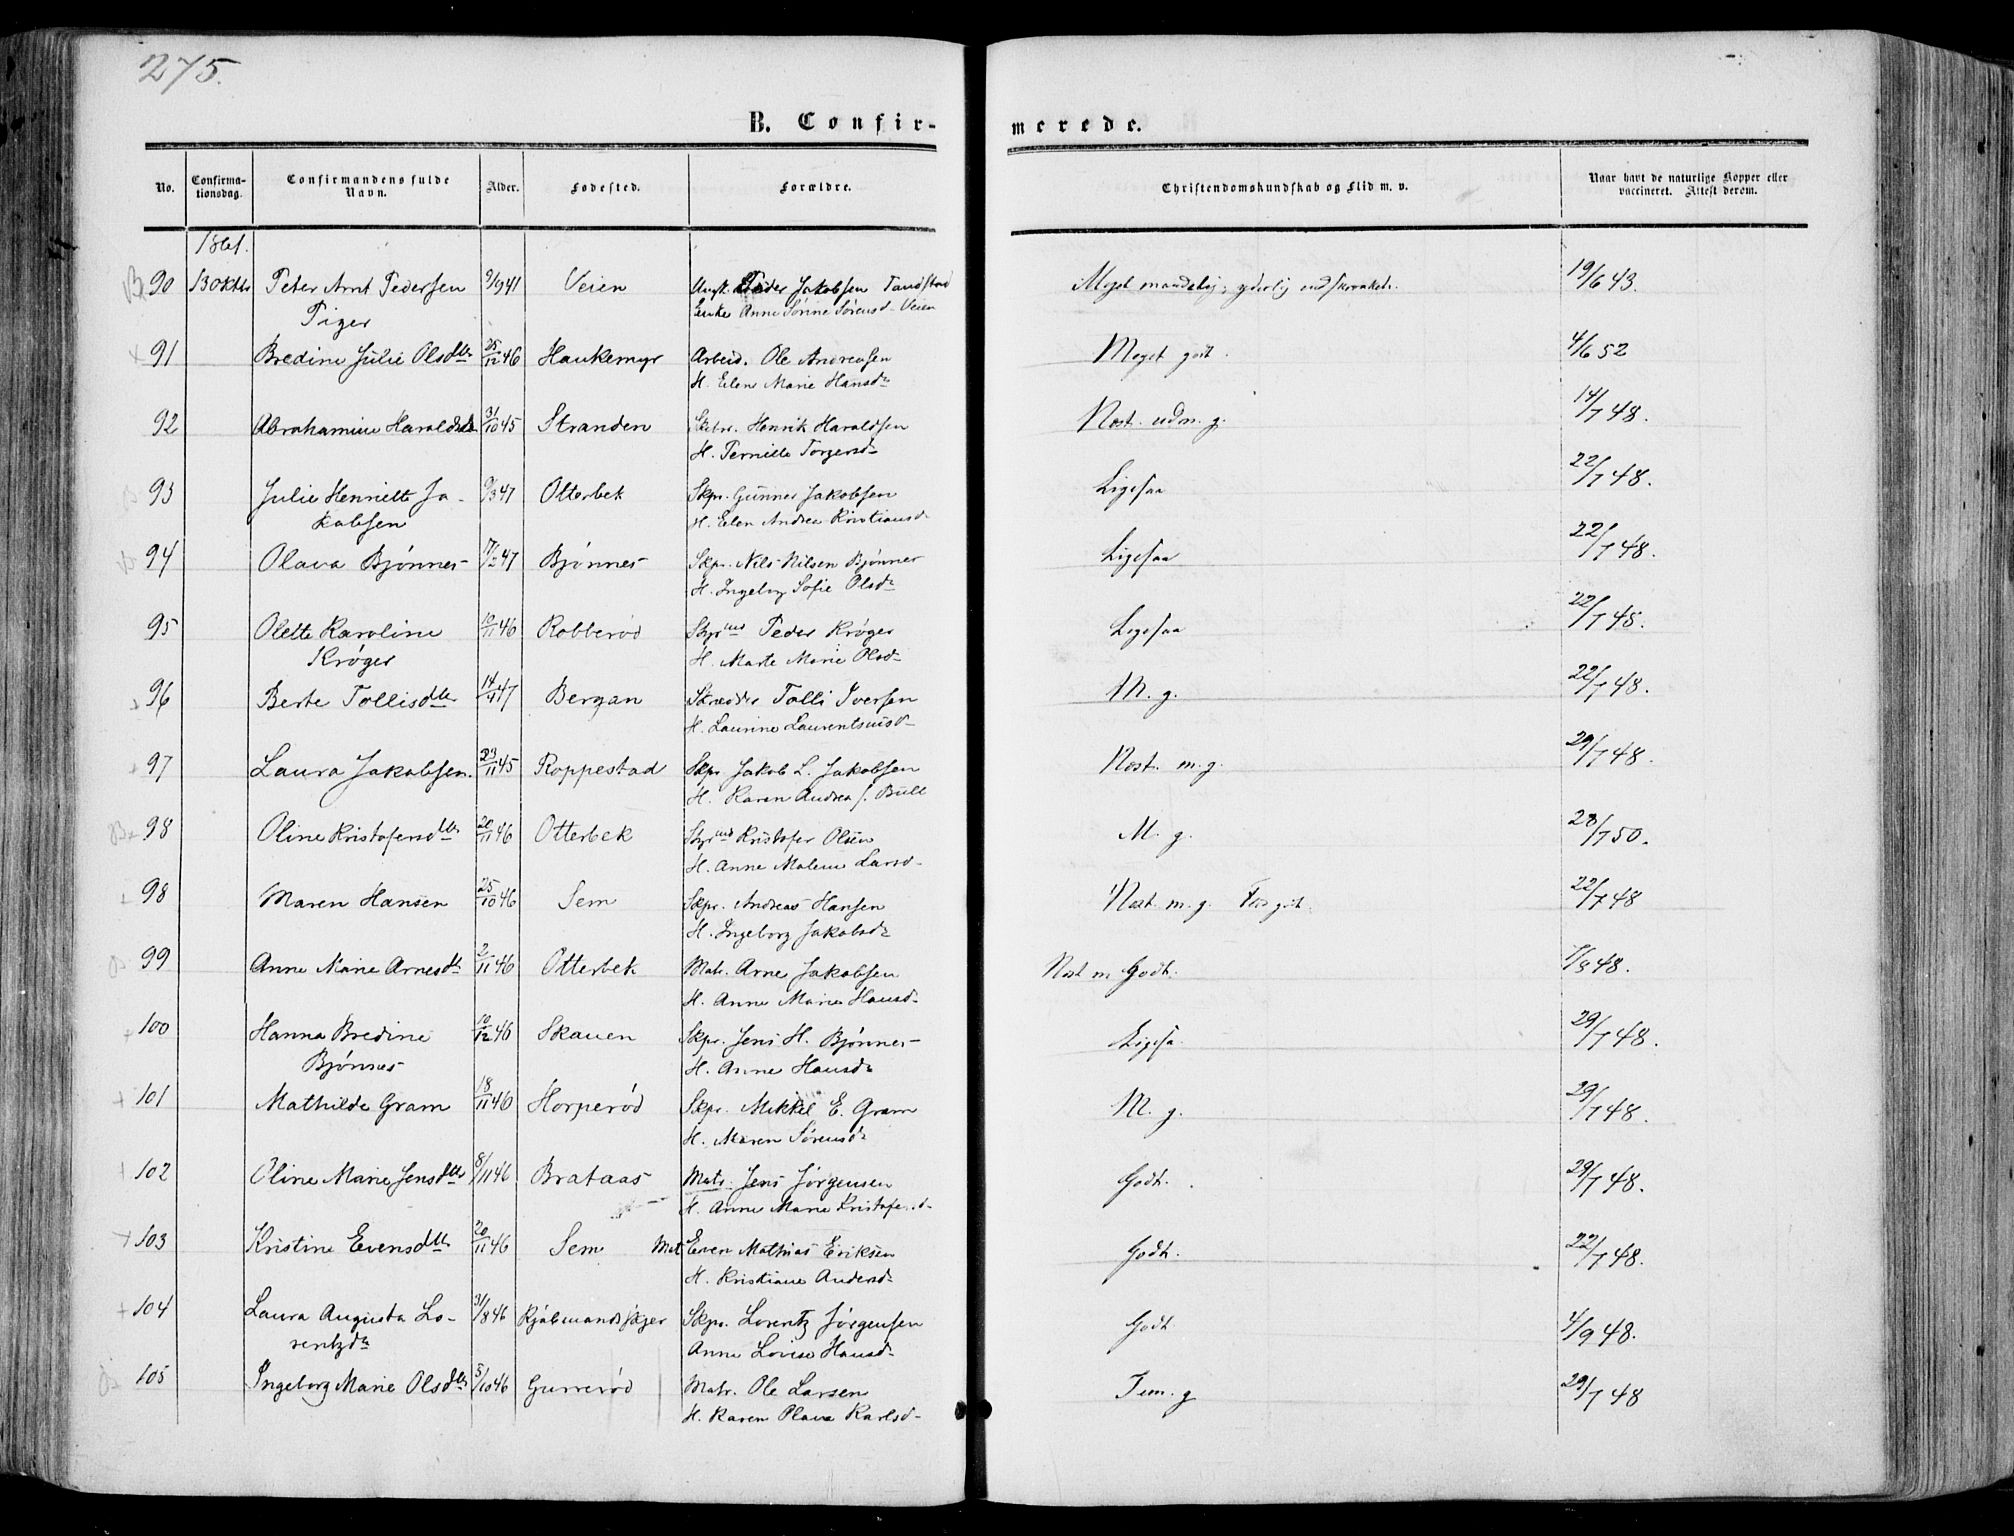 275.
B. Confir- merede.
No. Confirma- tionsdag. Confirmandens fulde Navn. Alder. Fødested. Forældre. Christendomskundskab og Flid m. v. Naar havt de naturlige Kopper eller vaccineret. Attest derom.
1861.
90 13 Oktbr Peter Arnt Pedersen 9/9 41 Veien Peder Jakobsen Tandstad Meget maadelig, 19/6 43.
Tiger Enke Anne Sørine Sørensd. Veien
91 Bredine Julie Olsdtr 25/12 46 Haukemyr Arbeid. Ole Andreasen Meget godt. 4/6 52
H. Elen Marie Hansdr
92 Abrahamine Haraldsdr 31/10 45 Stranden Henrik Haraldsen Næst. udm. g. 14/7 48.
H. Pernille Torgersd-
93 Julie Henriette Ja- 9/3 47 Otterbek Skpr. Gunner Jakobsen Ligesaa 22/7 48.
kobsen H. Elen Andrea Kristiansd-
94 Olava Bjønnes 17/2 47 Bjønnes Skpr. Nils Nilsen Bjønnes Ligesaa 22/7 48.
H. Ingeborg Sofie Olsdr
95 Olette Karoline 10/11 46 Robberød Styrmd Peder Krøger Ligesaa 22/7 48.
Krøger H. Marte Marie Olsd-
96 Berte Tollisdtr 14/4 47 Bergan Skrædder Tolli Iversen M. g. 22/7 48.
H. Laurine Laurentsuisd-
97 Laura Jakobsen. 23/11 45 Roppestad Skpr Jakob L. Jakobsen Næst. m. g. 29/7 48.
H. Karen Andrea f. Bull
98 Oline Kristofersdtr 20/11 46 Otterbek Styrmd Kristofer Olsen M. g. 28/7 50.
H. Anne Malene Larsd-
98 Maren Hansen 25/10 46 Sem Skpr. Andreas Hansen Næst. m. g. 22/7 48
H. Ingeborg Jakobsdr
99 Anne Marie Arnesdt 2/11 46 Otterbek Matr. Arne Jakobsen Næst m Godt. 1/8 48.
H. Anne Marie Hansd-
100 Hanna Bredine 10/12 46 Skauen Skpr. Jens H. Bjønnes Ligesa. 29/7 48.
Bjønnes H. Anne Hansdr
101 Mathilde Gram 18/11 46 Horperød Skpr. Mikkel E. Gram M. g. 29/7 48.
H. Maren Sørensdr
102 Oline Marie Jensdtr 8/11 46 Brataas Matr. Jens Jørgensen Godt. 29/7 48.
H. Anne Marie Kristofersd-
103 Kristine Evensdtr 20/11 46 Sem Mat. Even Mathias Eriksen Godt. 22/7 48.
H. Kristiane Andersdr
104 Laura Augusta Lo- 31/8 46 Kjøbmandskjær Skpr. Lorentz Jørgensen Godt 4/9 48.
rentzdr Anne Lovise Hansd-
105 Ingeborg Marie Olsdtr 5/10 46 Gurrerød Matr. Ole Larsen Tem. g 29/7 48
H. Karen Olava Karlsd-